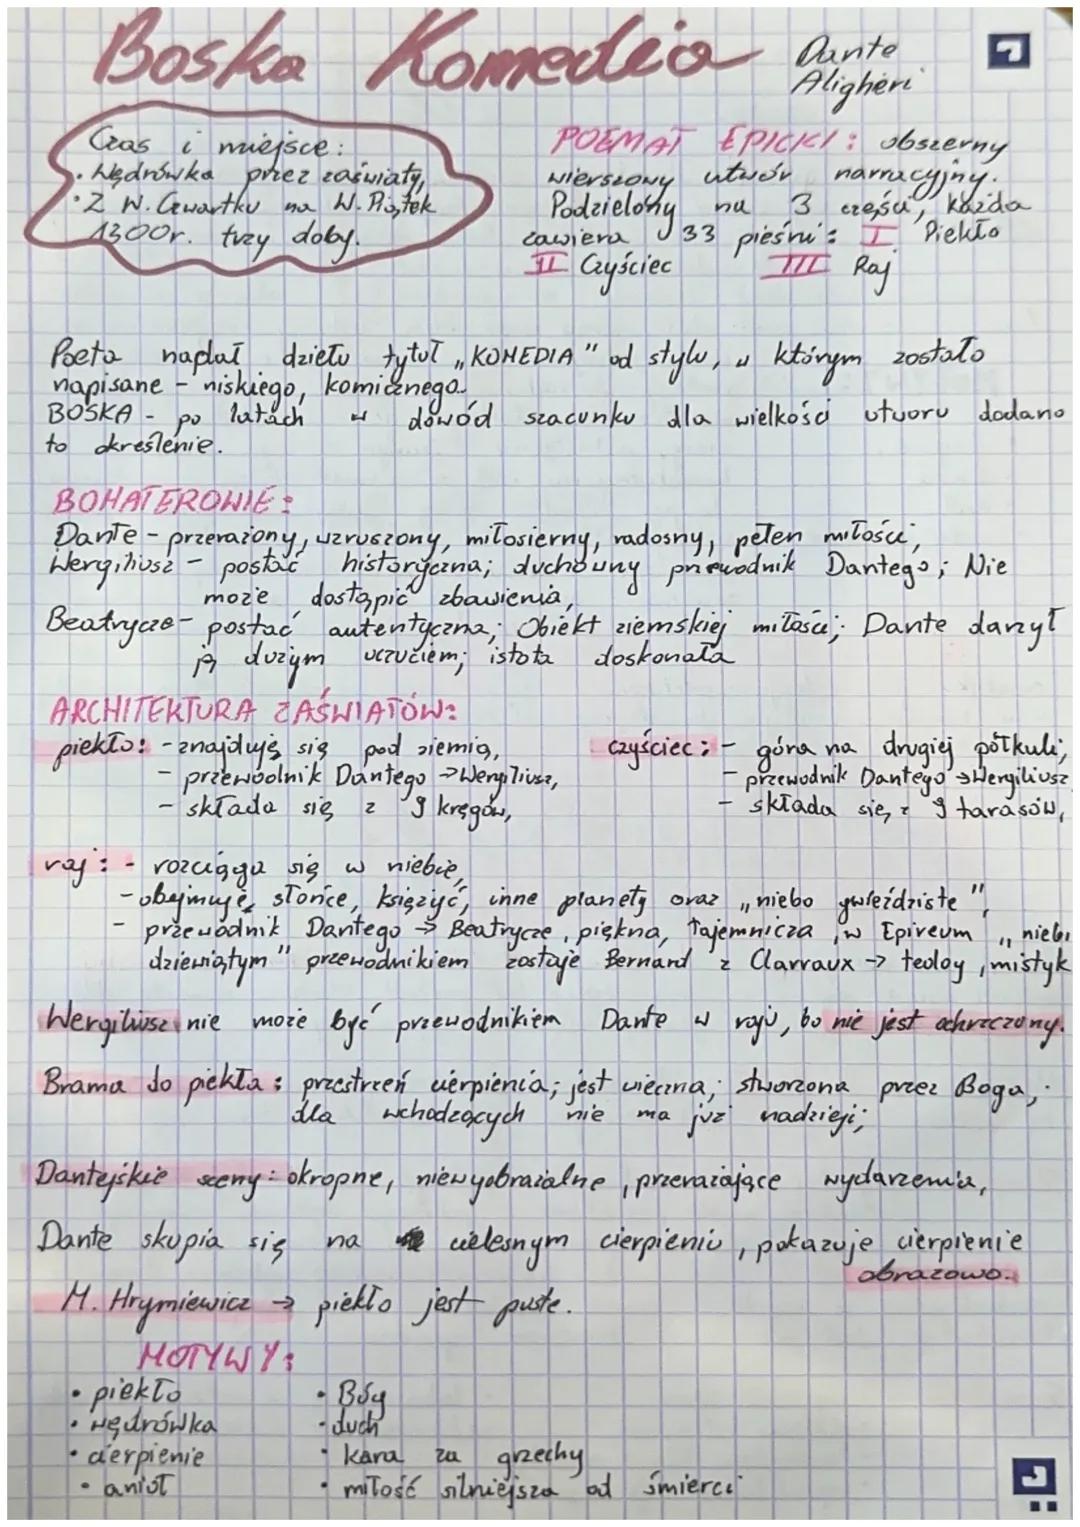 Boska Komedia
Dante
Aligheri
Czas i miejsce:
• Wędrówka przez zaświaty,
• Z W. Czwartku na W. Piątek
1300r. trzy doby.
POEMAT EPICKI: obszerny
wierszowy utwór narracyjny.
Podzielony na 3 części, każda
zawiera 33 pieśni: I Piekło
II Czyściec III Raj
Poeta nadał dziełu tytuł „KOMEDIA" od stylu, w którym zostało
napisane - niskiego, komicznego.
BOSKA - po latach w dowód szacunku dla wielkości utworu dodano
to określenie.
BOHATEROWIE:
Dante - przerażony, wzruszony, miłosierny, radosny, pełen miłości;
Wergiliusz - postać historyczna; duchowny przewodnik Dantego; Nie
może dostąpić zbawienia,
Beatrycze - postać autentyczna; Obiekt ziemskiej miłości; Dante darzył
ją dużym uczuciem; istota doskonała
ARCHITEKTURA ZAŚWIATÓW:
piekło: - znajduję się pod ziemią,
- przewodnik Dantego → Wergiliusz,
- składa się z 9 kręgów,
czyściec: - góra na drugiej półkuli;
- przewodnik Dantego → Wergiliusz
- składa się z 9 tarasów,
raj: - rozciąga się w niebie,
- obejmuje słońce, księżyć, inne planety oraz „niebo gwieździste",
- przewodnik Dantego → Beatrycze, piękna, Tajemnicza, w Epireum „niebi
dziewiątym" przewodnikiem zostaje Bernard z Clarvaux → teolog, mistyk
Wergiliusz nie może być przewodnikiem Dante w raju, bo nie jest ochrzczony.
Brama do piekła: przestrzeń cierpienia; jest wieczna; stworzona przez Boga;
dla wchodzących nie ma już nadzieji;
Dantejskie sceny: okropne, niewyobrażalne, przerażające wydarzenia,
Dante skupia się na cielesnym cierpieniu, pokazuje cierpienie
obrazowo.
M. Hrymiewicz → piekło jest puste.
MOTYWY:
• piekło
• wędrówka
• cierpienie
• anioł
• Bóg
• duch
• kara za grzechy
• miłość silniejsza od śmierci